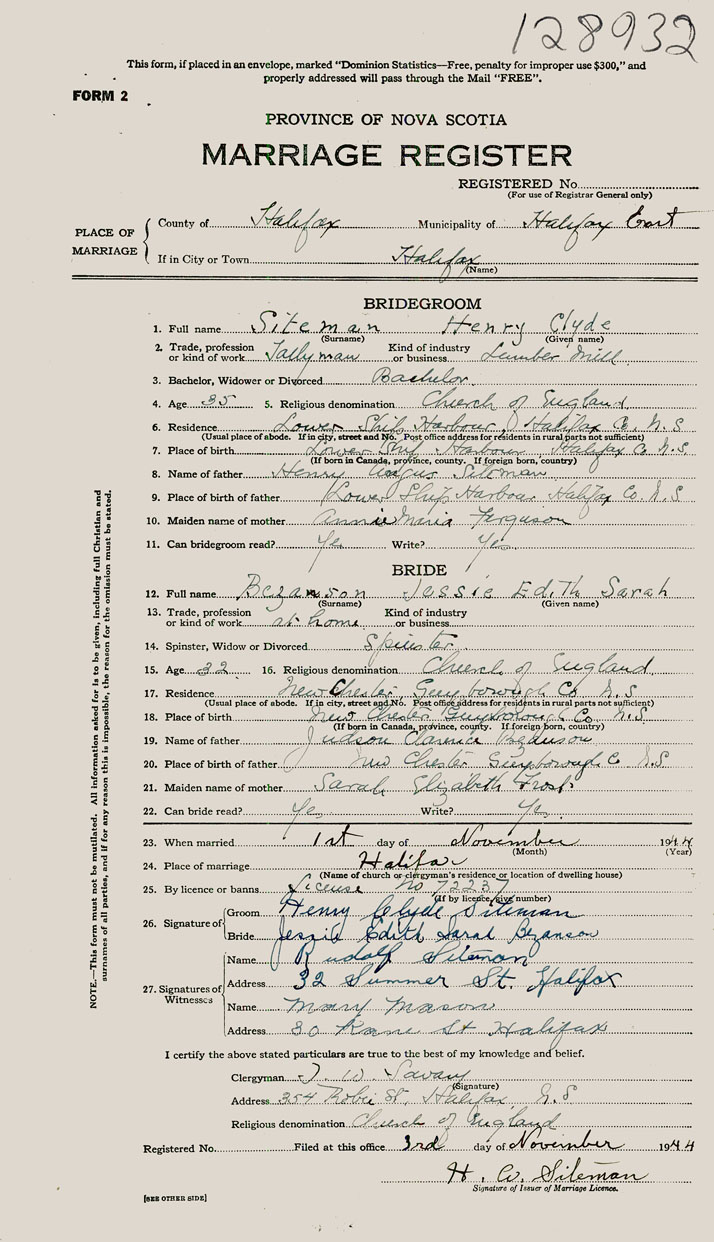 128932
This form, if placed in an envelope, marked "Dominion Statistics—Free, penalty for improper use $300," and
properly addressed will pass through the Mail "FREE".
FORM 2
PROVINCE OF NOVA SCOTIA
MARRIAGE REGISTER
REGISTERED No.
(For use of Registrar General only)
PLACE OF MARRIAGE
County of Halifax Municipality of Halifax East
If in City or Town Halifax
(Name)
BRIDEGROOM
1. Full name Siteman Henry Clyde
(Surname) (Given name)
2. Trade, profession or kind of work Tallyman Kind of industry or business Lumber Mill
3. Bachelor, Widower or Divorced Bachelor
4. Age 35 5. Religious denomination Church of England
6. Residence Lower Ship Harbour, Halifax Co. N.S
(Usual place of abode. If in city, street and No. Post office address for residents in rural parts not sufficient)
7. Place of birth Lower Ship Harbour Halifax Co N.S
(If born in Canada, province, county. If foreign born, country)
8. Name of father Henry Angus Siteman
9. Place of birth of father Lower Ship Harbour Halifax Co. N.S
10. Maiden name of mother Annie Maria Ferguson
11. Can bridegroom read? Yes Write? Yes
BRIDE
12. Full name Bezanson Jessie Edith Sarah
(Surname) (Given name)
13. Trade, profession or kind of work at home Kind of industry or business
14. Spinster, Widow or Divorced Spinster
15. Age 32 16. Religious denomination Church of England
17. Residence New Chester Guysborough Co N.S
(Usual place of abode. If in city, street and No. Post office address for residents in rural parts not sufficient)
18. Place of birth New Chester Guysborough Co N.S.
(If born in Canada, province, county. If foreign born, country)
19. Name of father Judson Clarence Bezanson
20. Place of birth of father New Chester Guysborough Co N.S
21. Maiden name of mother Sarah Elizabeth Frost
22. Can bride read? Yes Write? Yes
23. When married 1st day of November 1944
(Month) (Year)
24. Place of marriage Halifax
(Name of church or clergyman's residence or location of dwelling house)
25. By licence or banns License No 72237
(If by licence, give number)
26. Signature of
Groom Henry Clyde Siteman
Bride Jessie Edith Sarah Bezanson
27. Signatures of Witnesses
Name Rudolf Siteman
Address 32 Summer St. Halifax
Name Mary Mason
Address 30 Kane St Halifax
I certify the above stated particulars are true to the best of my knowledge and belief.
Clergyman J. W. Savary
(Signature)
Address 354 Robie St, Halifax, N.S
Religious denomination Church of England
Registered No. Filed at this office 3rd day of November 1944
H. W. Siteman
Signature of Issuer of Marriage Licence.
[SEE OTHER SIDE]
NOTE.—This form must not be mutilated. All information asked for is to be given, including full Christian and
surnames of all parties, and if for any reason this is impossible, the reason for the omission must be stated.